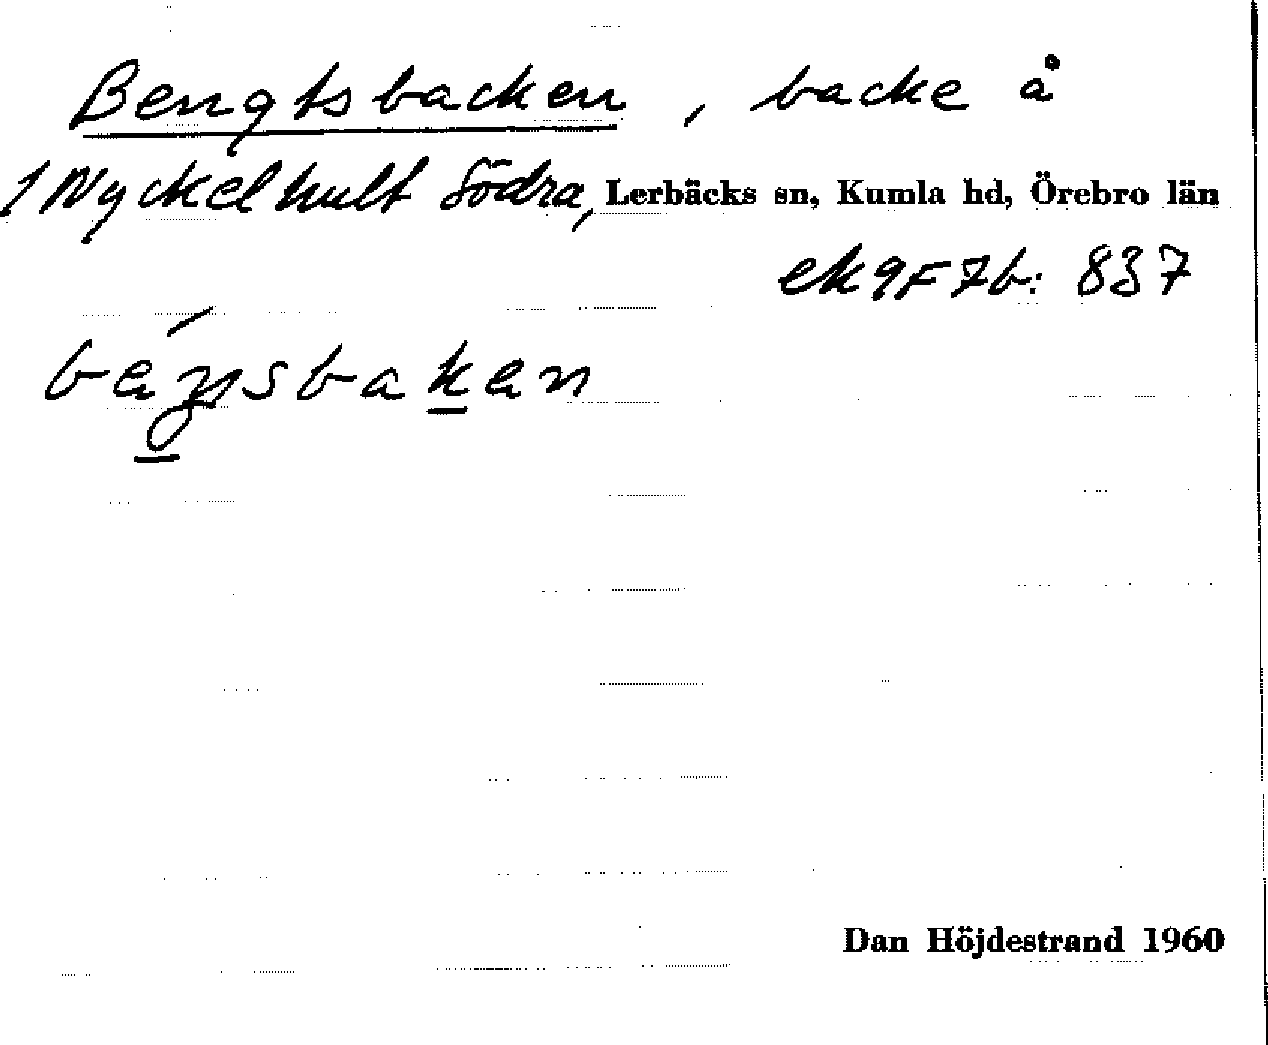 Bengtsbacken, backe å
1 Nyckelhult Södra, Lerbäcks sn, Kumla hd, Örebro län
ek 9F7b: 837
Dan Höjdestrand 1960